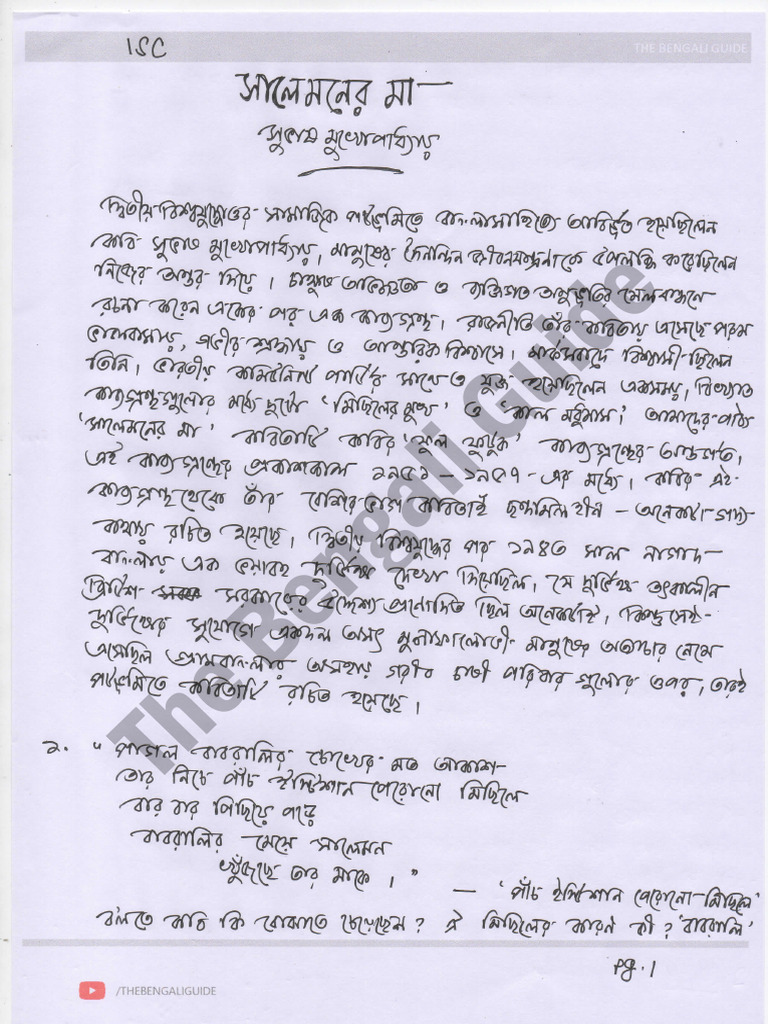 ISC
THE BENGALI GUIDE
সালেমনের মা —
সুভাষ মুখোপাধ্যায়
দ্বিতীয় বিশ্বযুদ্ধোত্তর সামাজিক পটভূমিতে বাংলাসাহিত্যে আবির্ভূত হয়েছিলেন
কবি সুভাষ মুখোপাধ্যায়, মানুষের দৈনন্দিন জীবনযন্ত্রনাকে উপলব্ধি করেছিলেন
নিজের অন্তর দিয়ে। চাক্ষুষ অভিজ্ঞতা ও ব্যক্তিগত অনুভূতির মেলবন্ধনে
রচনা করেন একের পর এক কাব্যগ্রন্থ। রাজনীতি তাঁর কবিতায় এসেছে পরম
ভালবাসায়, গভীর শ্রদ্ধায় ও আন্তরিক বিশ্বাসে। মার্কসবাদে বিশ্বাসী ছিলেন
তিনি। ভারতীয় কমিউনিস্ট পার্টির সাথেও যুক্ত হয়েছিলেন একসময়, বিখ্যাত
কাব্যগ্রন্থগুলোর মধ্যে দুটো 'মিছিলের মুখ' ও 'কাল মধুমাস'। আমাদের পাঠ্য
'সালেমনের মা' কবিতাটি কবির 'ফুল ফুটুক' কাব্যগ্রন্থের অন্তর্গত,
এই কাব্যগ্রন্থের প্রকাশকাল ১৯৫১ - ১৯৫৭ - এর মধ্যে। কবির এই
কাব্যগ্রন্থ থেকে তাঁর বেশির ভাগ কবিতাই ছন্দমিল হীন – অনেকটা গদ্য
কথায় রচিত হয়েছে। দ্বিতীয় বিশ্বযুদ্ধের পর ১৯৪৩ সাল নাগাদ
বাংলায় এক ভয়াবহ দুর্ভিক্ষ দেখা দিয়েছিল, সে দুর্ভিক্ষ তৎকালীন
ব্রিটিশ সরকারের উদ্দেশ্য প্রনোদিত ছিল অনেকটাই, কিন্তু সেই
দুর্ভিক্ষের সুযোগে একদল অসৎ মুনাফালোভী মানুষের অত্যাচার নেমে
এসেছিল গ্রামবাংলার অসহায় গরীব চাষী পরিবার গুলোর ওপর, তারই
পটভূমিতে কবিতাটি রচিত হয়েছে।
১. "পাগল বাবরালির চোখের মত আকাশ
তার নিচে পাঁচ ইস্টিশান পেরোনো মিছিলে
বার বার পিছিয়ে পড়ে
বাবরালির মেয়ে সালেমন
খুঁজছে তার মাকে।"
— 'পাঁচ ইস্টিশান পেরোনো মিছিলে'
বলতে কবি কি বোঝাতে চেয়েছেন? ঐ মিছিলের কারণ কী? 'বাবরালি'
pg. 1
/THEBENGALIGUIDE
The Bengali Guide